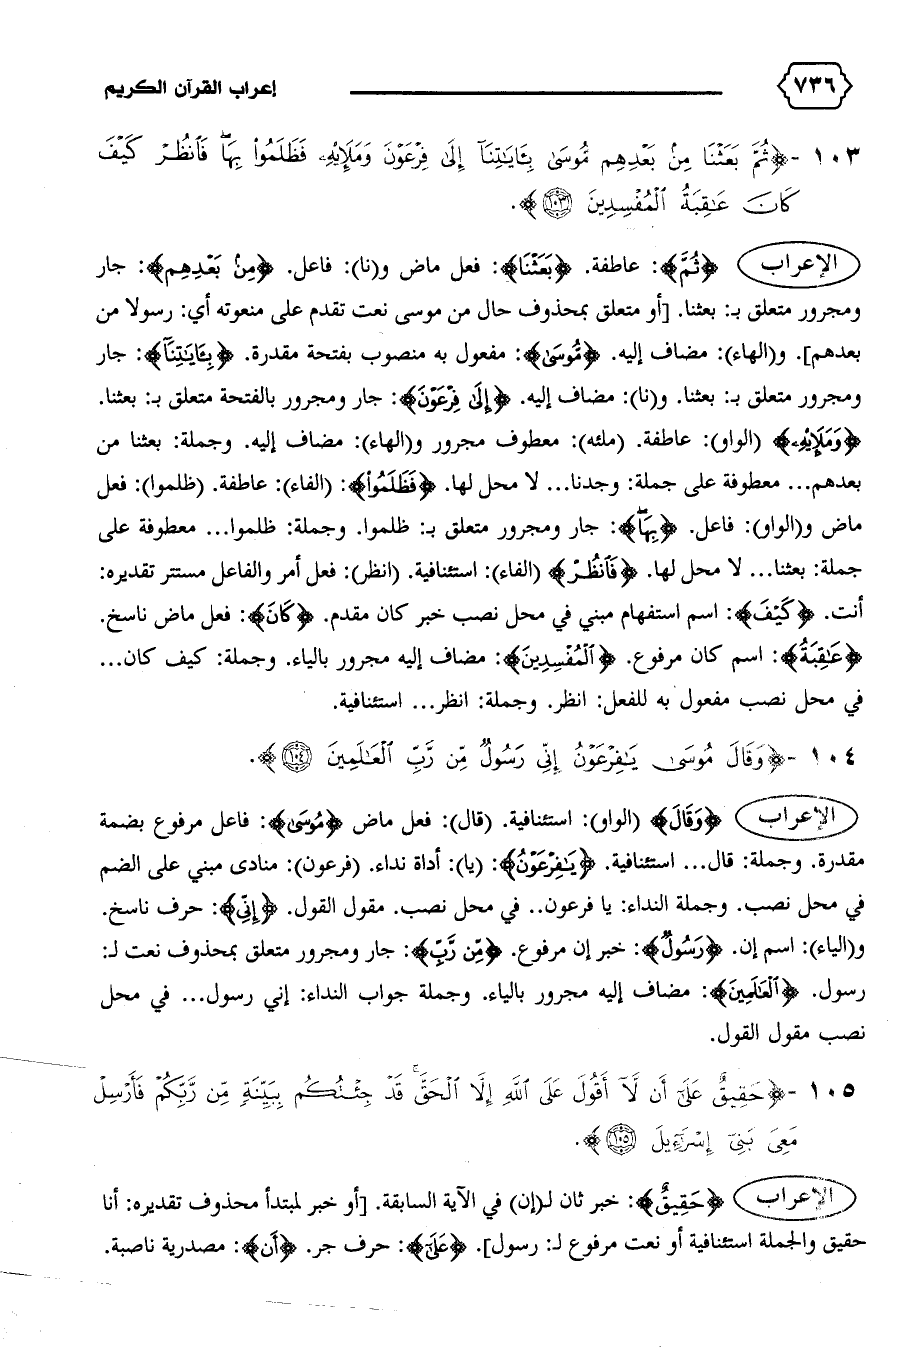 ٧٣٦ إعراب القرآن الكريم
١٠٣ - ﴿ثُمَّ بَعَثْنَا مِنۢ بَعْدِهِم مُّوسَىٰ بِـَٔايَـٰتِنَآ إِلَىٰ فِرْعَوْنَ وَمَلَإِي۟هِۦ فَظَلَمُوا۟ بِهَا ۖ فَٱنظُرْ كَيْفَ
كَانَ عَـٰقِبَةُ ٱلْمُفْسِدِينَ ١٠٣﴾.
الإعراب ﴿ثُمَّ﴾: عاطفة. ﴿بَعَثْنَا﴾: فعل ماض و(نا): فاعل. ﴿مِنۢ بَعْدِهِم﴾: جار
ومجرور متعلق بـ: بعثنا. [أو متعلق بمحذوف حال من موسى نعت تقدم على منعوته أي: رسولا من
بعدهم]. و(الهاء): مضاف إليه. ﴿مُّوسَىٰ﴾: مفعول به منصوب بفتحة مقدرة. ﴿بِـَٔايَـٰتِنَآ﴾: جار
ومجرور متعلق بـ: بعثنا. و(نا): مضاف إليه. ﴿إِلَىٰ فِرْعَوْنَ﴾: جار ومجرور بالفتحة متعلق بـ: بعثنا.
﴿وَمَلَإِي۟هِۦ﴾ (الواو): عاطفة. (ملئه): معطوف مجرور و(الهاء): مضاف إليه. وجملة: بعثنا من
بعدهم... معطوفة على جملة: وجدنا... لا محل لها. ﴿فَظَلَمُوا۟﴾: (الفاء): عاطفة. (ظلموا): فعل
ماض و(الواو): فاعل. ﴿بِهَا ۖ﴾: جار ومجرور متعلق بـ: ظلموا. وجملة: ظلموا... معطوفة على
جملة: بعثنا... لا محل لها. ﴿فَٱنظُرْ﴾ (الفاء): استئنافية. (انظر): فعل أمر والفاعل مستتر تقديره:
أنت. ﴿كَيْفَ﴾: اسم استفهام مبني في محل نصب خبر كان مقدم. ﴿كَانَ﴾: فعل ماض ناسخ.
﴿عَـٰقِبَةُ﴾: اسم كان مرفوع. ﴿ٱلْمُفْسِدِينَ﴾: مضاف إليه مجرور بالياء. وجملة: كيف كان...
في محل نصب مفعول به للفعل: انظر. وجملة: انظر... استئنافية.
١٠٤ - ﴿وَقَالَ مُوسَىٰ يَـٰفِرْعَوْنُ إِنِّى رَسُولٌ مِّن رَّبِّ ٱلْعَـٰلَمِينَ ١٠٤﴾.
الإعراب ﴿وَقَالَ﴾ (الواو): استئنافية. (قال): فعل ماض ﴿مُوسَىٰ﴾: فاعل مرفوع بضمة
مقدرة. وجملة: قال... استئنافية. ﴿يَـٰفِرْعَوْنُ﴾: (يا): أداة نداء. (فرعون): منادى مبني على الضم
في محل نصب. وجملة النداء: يا فرعون.. في محل نصب. مقول القول. ﴿إِنِّى﴾: حرف ناسخ.
و(الياء): اسم إن. ﴿رَسُولٌ﴾: خبر إن مرفوع. ﴿مِّن رَّبِّ﴾: جار ومجرور متعلق بمحذوف نعت لـ:
رسول. ﴿ٱلْعَـٰلَمِينَ﴾: مضاف إليه مجرور بالياء. وجملة جواب النداء: إني رسول... في محل
نصب مقول القول.
١٠٥ - ﴿حَقِيقٌ عَلَىٰٓ أَن لَّآ أَقُولَ عَلَى ٱللَّهِ إِلَّا ٱلْحَقَّ ۚ قَدْ جِئْتُكُم بِبَيِّنَةٍ مِّن رَّبِّكُمْ فَأَرْسِلْ
مَعِىَ بَنِىٓ إِسْرَٰٓءِيلَ ١٠٥﴾.
الإعراب ﴿حَقِيقٌ﴾: خبر ثان لـ(إن) في الآية السابقة. [أو خبر لمبتدأ محذوف تقديره: أنا
حقيق والجملة استئنافية أو نعت مرفوع لـ: رسول]. ﴿عَلَىٰٓ﴾: حرف جر. ﴿أَن﴾: مصدرية ناصبة.